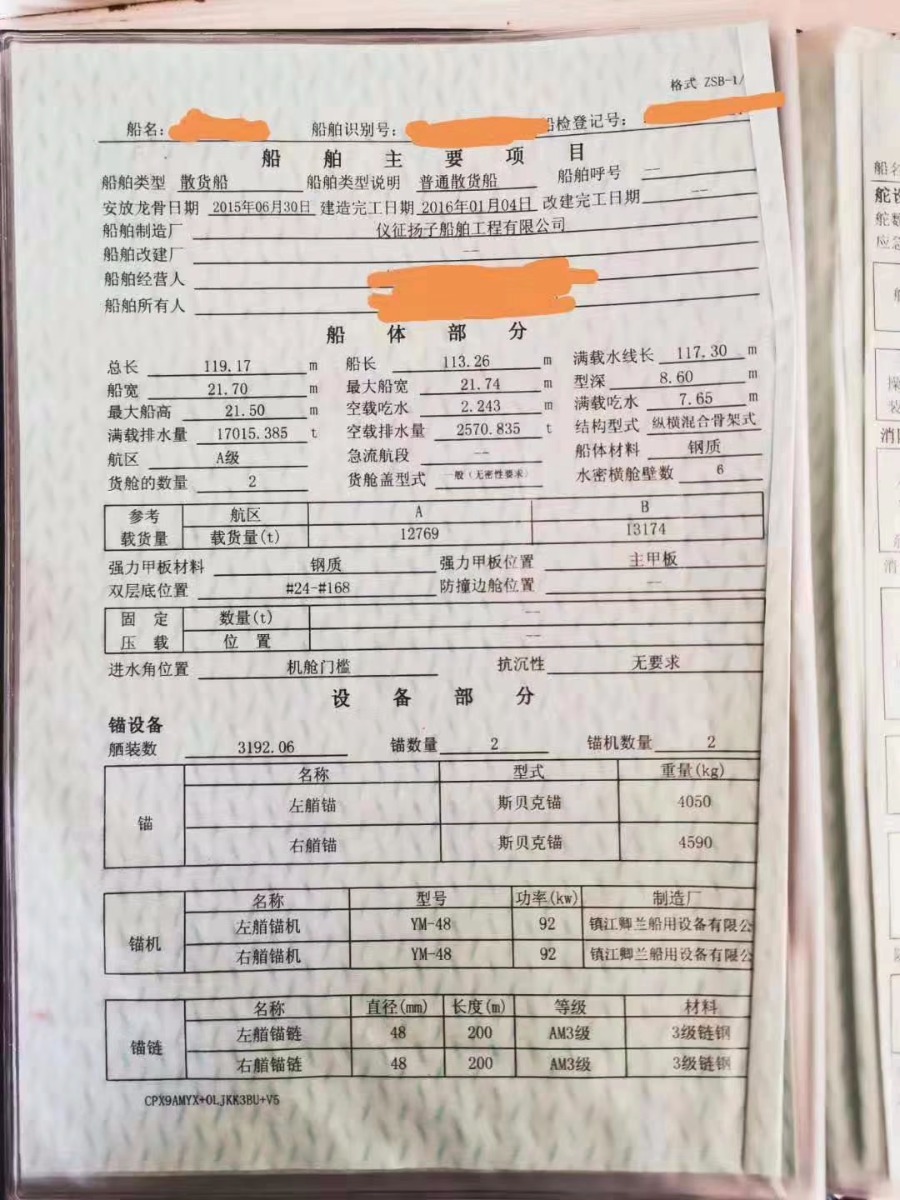 格式 ZSB-1/
船名: 船舶识别号: 船检登记号:
船舶主要项目
船舶类型 散货船 船舶类型说明 普通散货船 船舶呼号 --
安放龙骨日期 2015年06月30日 建造完工日期 2016年01月04日 改建完工日期 --
船舶制造厂 仪征扬子船舶工程有限公司
船舶改建厂 --
船舶经营人
船舶所有人
船体部分
总长 119.17 m 船长 113.26 m 满载水线长 117.30 m
船宽 21.70 m 最大船宽 21.74 m 型深 8.60 m
最大船高 21.50 m 空载吃水 2.243 m 满载吃水 7.65 m
满载排水量 17015.385 t 空载排水量 2570.835 t 结构型式 纵横混合骨架式
航区 A级 急流航段 -- 船体材料 钢质
货舱的数量 2 货舱盖型式 一般(无密性要求) 水密横舱壁数 6
参考 航区 A B
载货量 载货量(t) 12769 13174
强力甲板材料 钢质 强力甲板位置 主甲板
双层底位置 #24-#168 防撞边舱位置 --
固定 数量(t) --
压载 位置 --
进水角位置 机舱门槛 抗沉性 无要求
设备部分
锚设备
舾装数 3192.06 锚数量 2 锚机数量 2
名称 型式 重量(kg)
锚 左艏锚 斯贝克锚 4050
右艏锚 斯贝克锚 4590
名称 型号 功率(kw) 制造厂
锚机 左艏锚机 YM-48 92 镇江卿兰船用设备有限公
右艏锚机 YM-48 92 镇江卿兰船用设备有限公
名称 直径(mm) 长度(m) 等级 材料
锚链 左艏锚链 48 200 AM3级 3级链钢
右艏锚链 48 200 AM3级 3级链钢
CPX9AMYX+OLJKK3BU+V5
船名
舵设
舵数
应急
消防
消